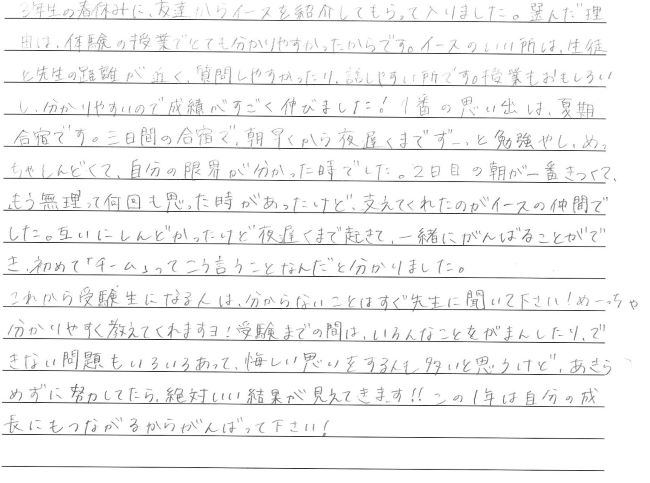 3年生の春休みに、友達からイースを紹介してもらって入りました。選んだ理
由は、体験の授業でとても分かりやすかったからです。イースのいい所は、生徒
と先生の距離が近く、質問しやすかったり、話しやすい所です。授業もおもしろい
し、分かりやすいので成績がすごく伸びました！1番の思い出は、夏期
合宿です。三日間の合宿で、朝早くから夜遅くまでずーっと勉強やし、めっ
ちゃしんどくて、自分の限界が分かった時でした。2日目の朝が一番きつくて、
もう無理って何回も思った時があったけど、支えてくれたのがイースの仲間で
した。互いにしんどかったけど夜遅くまで起きて、一緒にがんばることがで
き、初めて「チーム」ってこう言うことなんだと分かりました。
これから受験生になる人は、分からないことはすぐ先生に聞いて下さい！めーっちゃ
分かりやすく教えてくれますヨ！受験までの間は、いろんなことをがまんしたり、で
きない問題もいろいろあって、悔しい思いをする人も多いと思うけど、あきら
めずに努力してたら、絶対いい結果が見えてきます!!この1年は自分の成
長にもつながるからがんばって下さい！